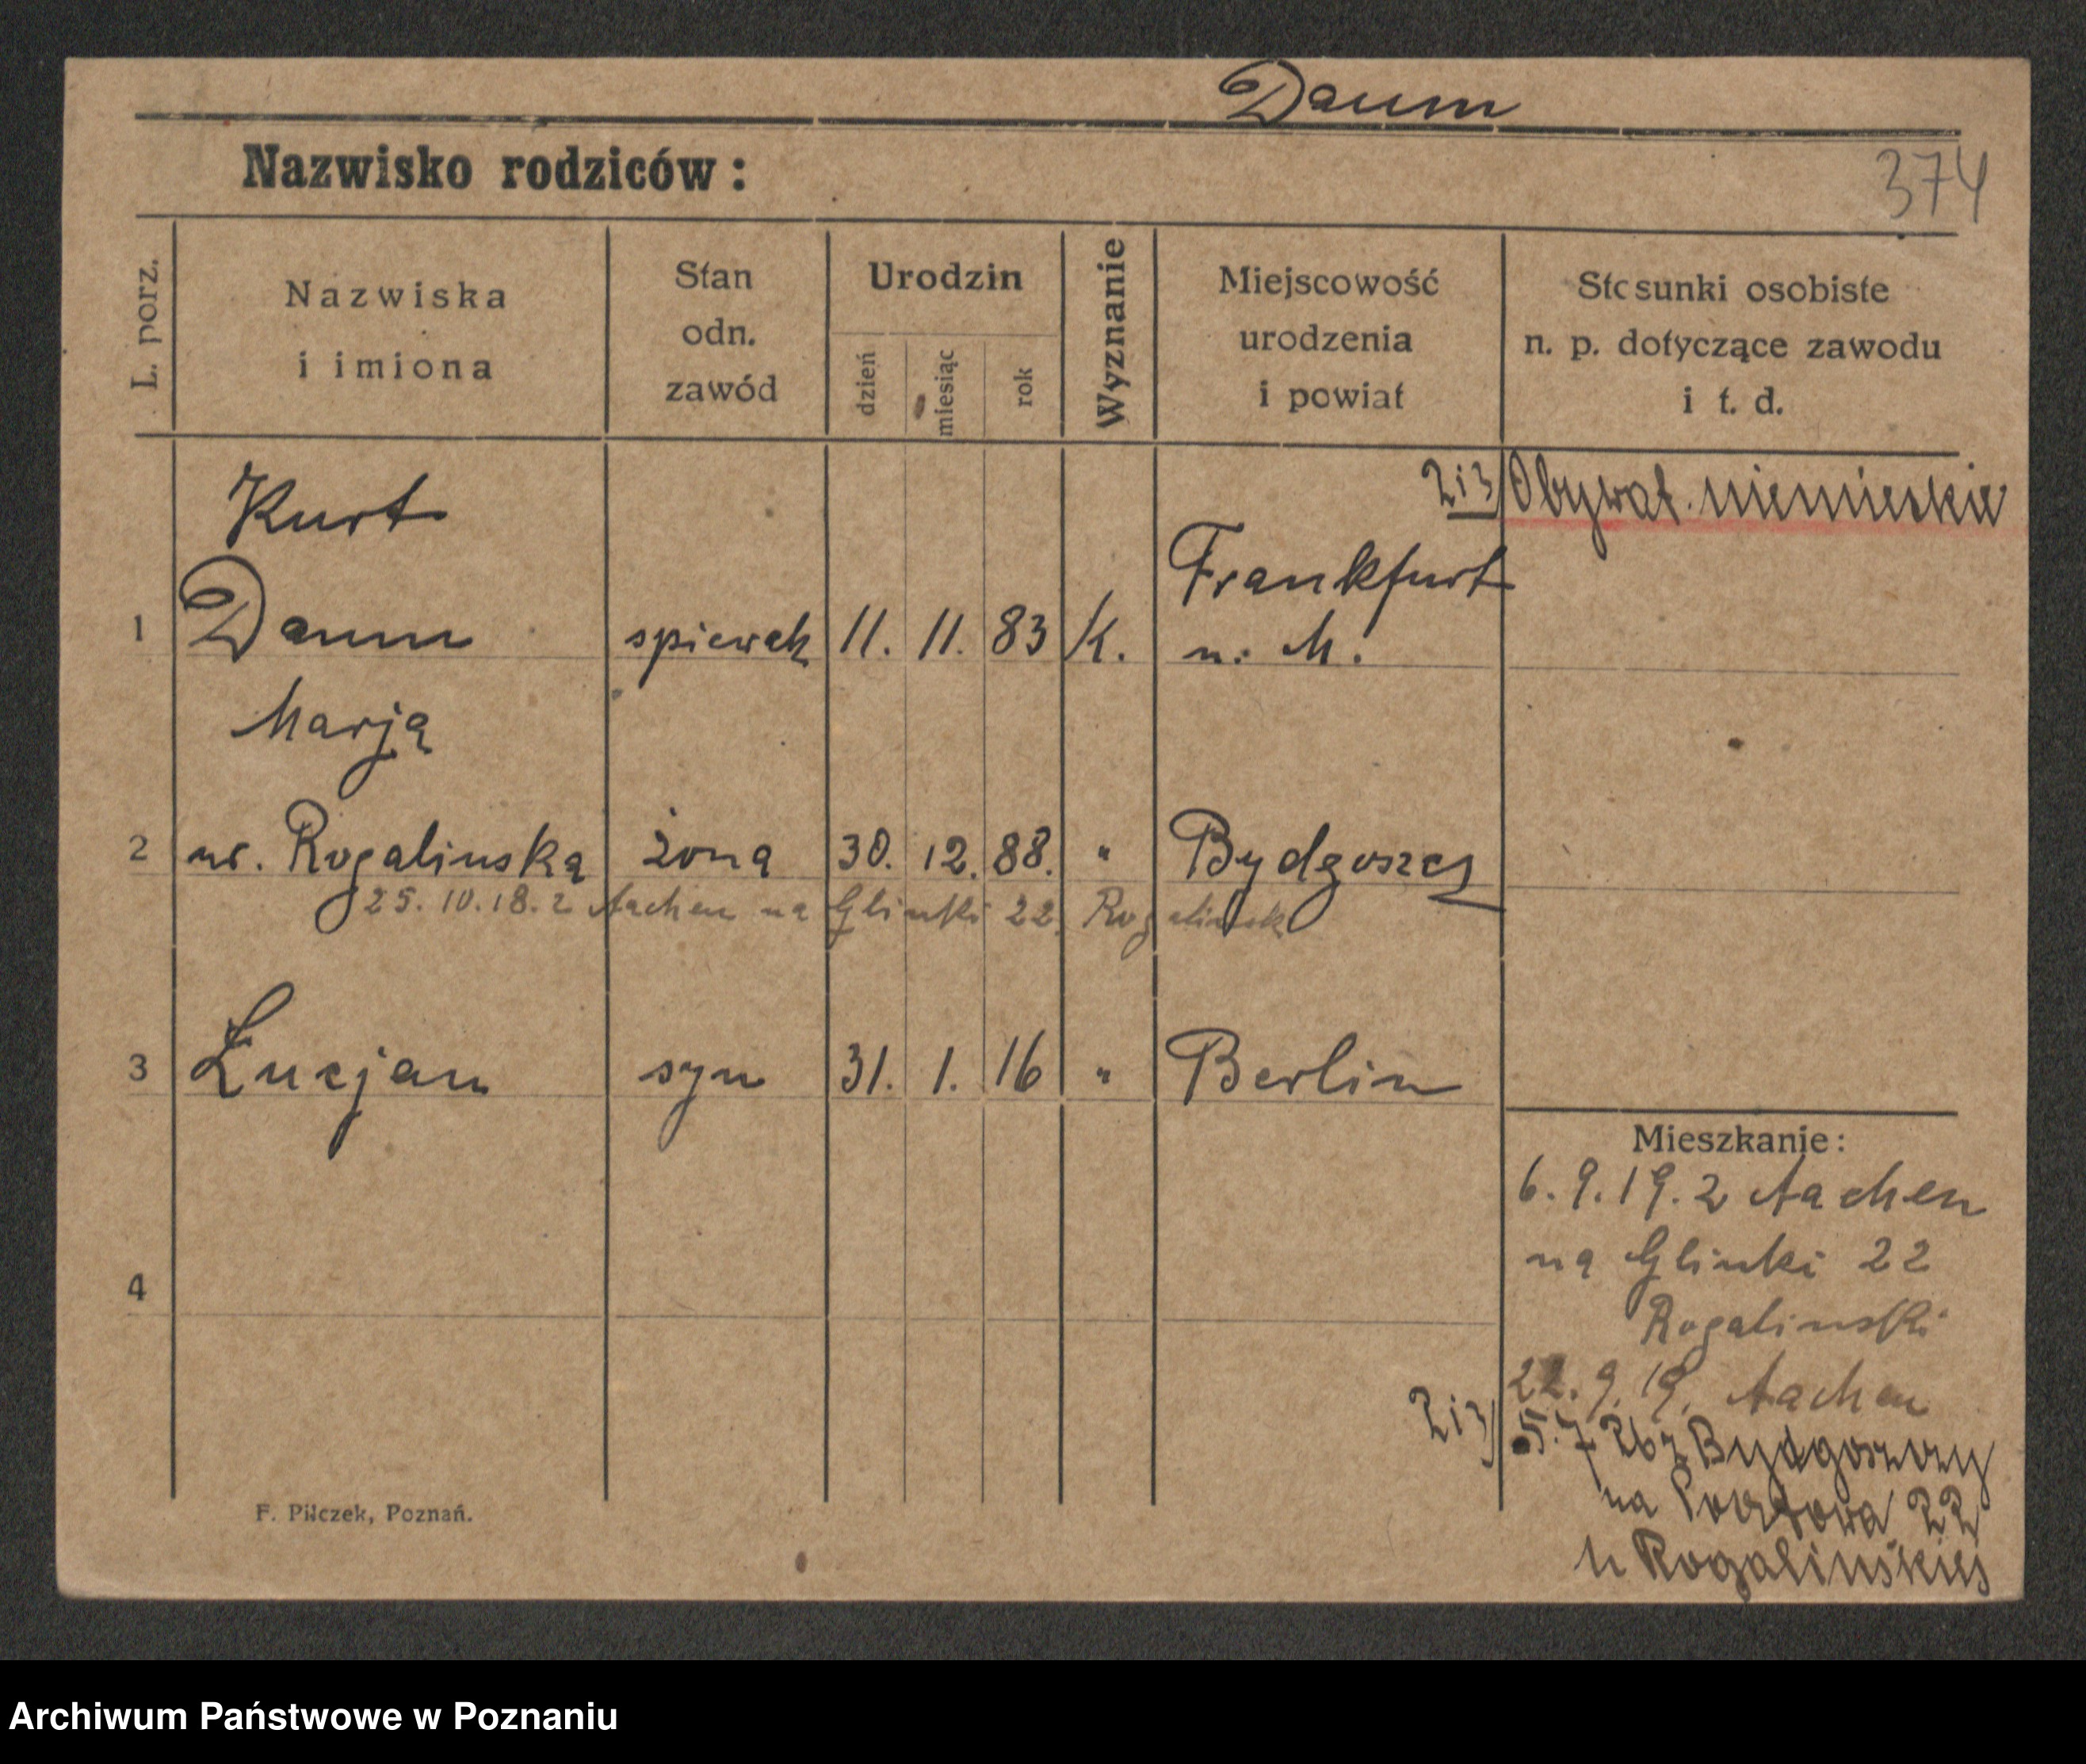 Daum
Nazwisko rodziców:
374
L. porz.
Nazwiska
i imiona
Stan
odn.
zawód
Urodzin
dzień
miesiąc
rok
Wyznanie
Miejscowość
urodzenia
i powiat
Stosunki osobiste
n. p. dotyczące zawodu
i t. d.
2 i 3) Obywat. niemieckie
Kurt
1 Daum spiewak 11. 11. 83 K. Frankfurt
n. M.
Marja
2 ur. Rogalinska żona 30. 12. 88. " Bydgoszcz
25. 10. 18. z Aachen na Glinki 22 Rogalinsk
3 Lucjan syn 31. 1. 16 " Berlin
4
Mieszkanie:
6. 9. 19. z Aachen
na Glinki 22
Rogalinski
22. 9. 19. Aachen
2 i 3) 5. 7 26 z Bydgoszczy
na Pocztowa 22
u Rogalińskiej
F. Pilczek, Poznań.
Archiwum Państwowe w Poznaniu